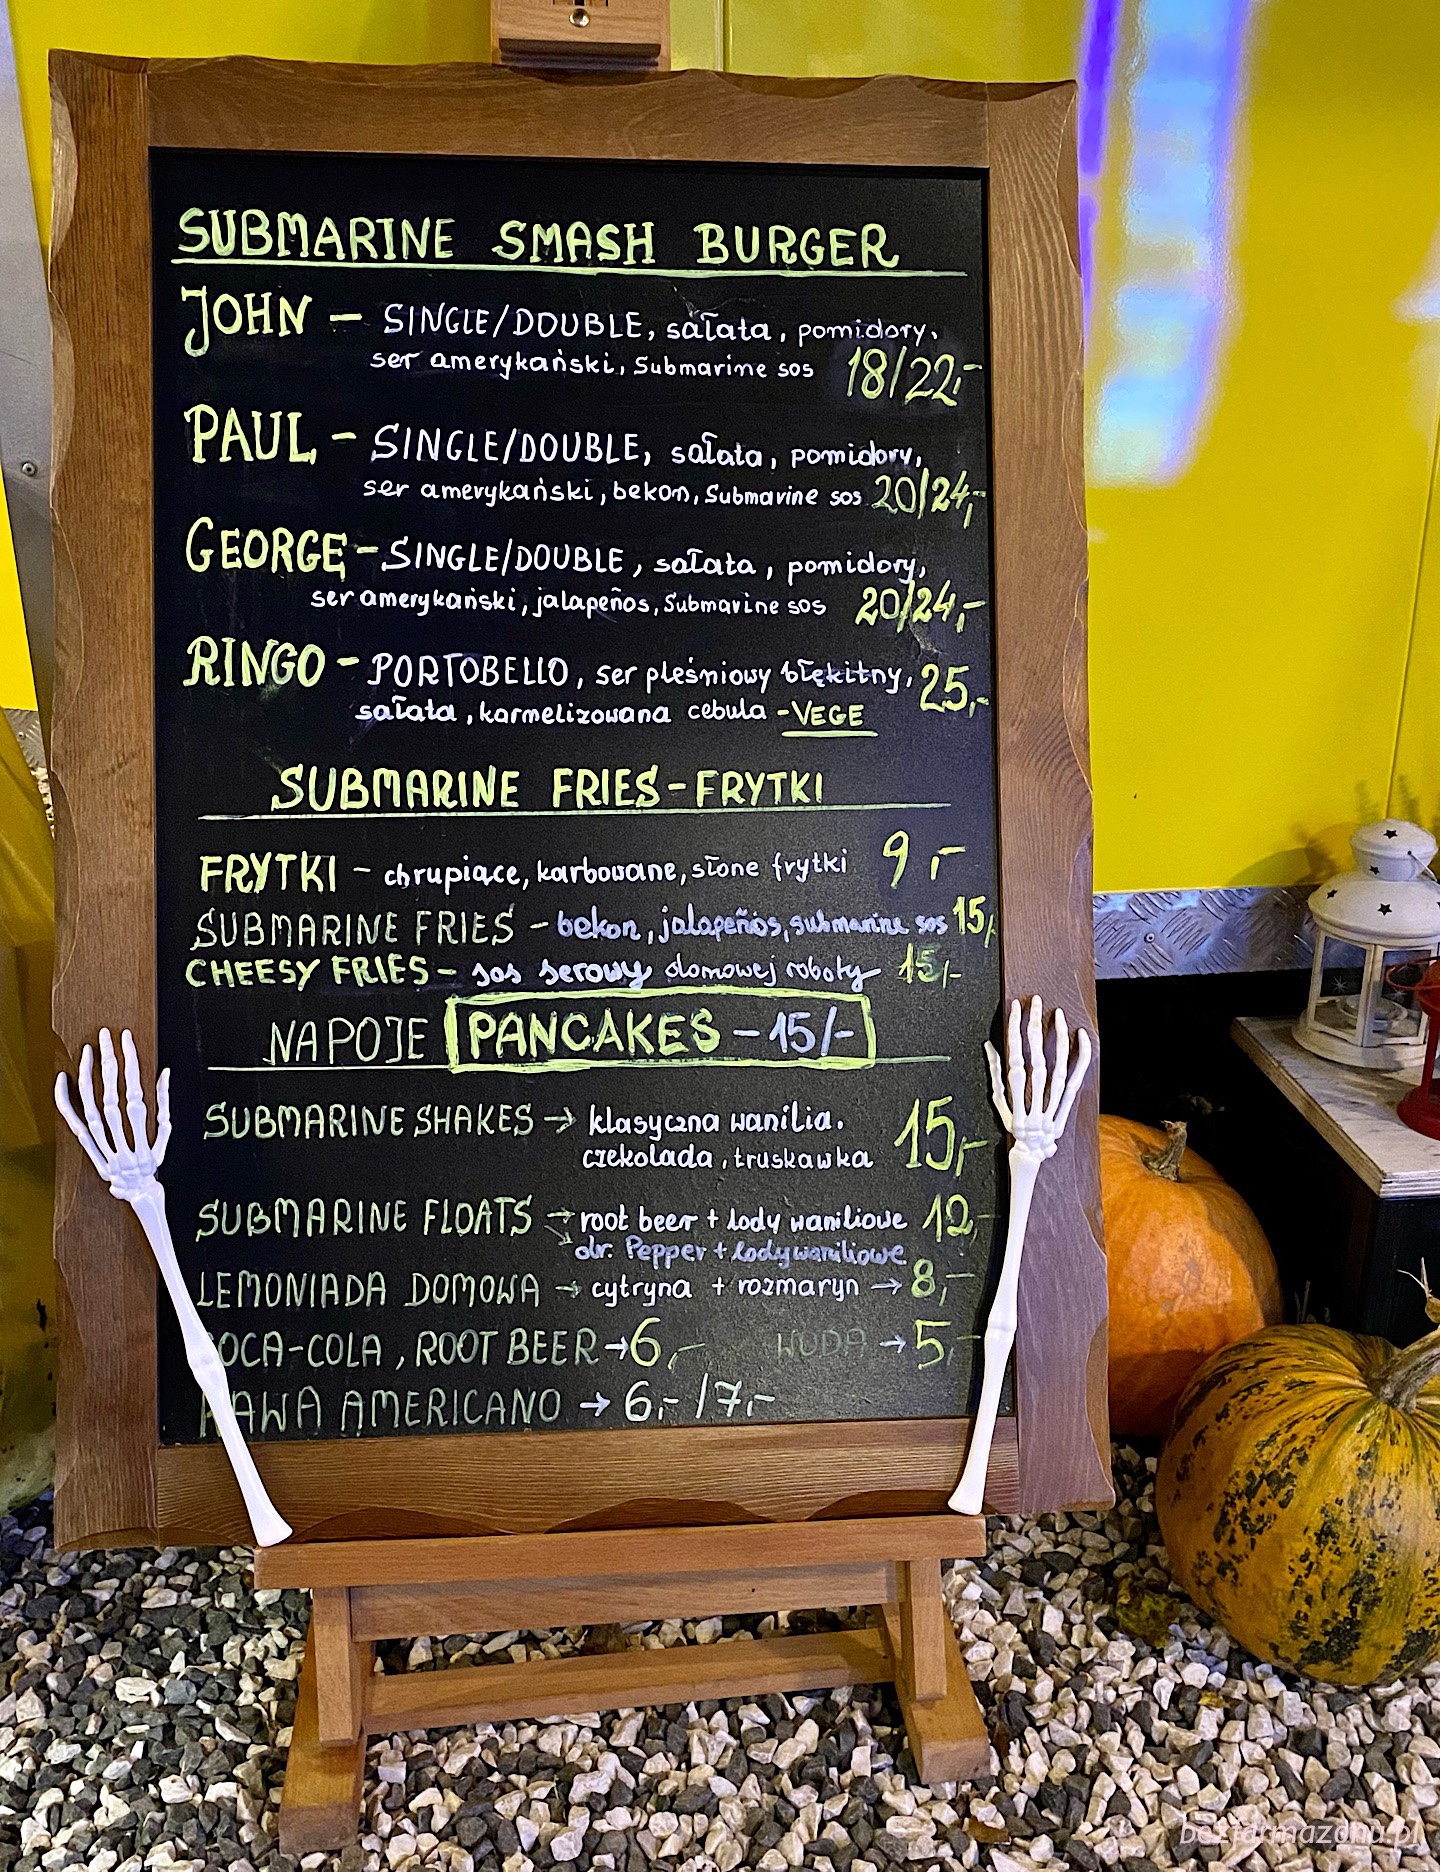 SUBMARINE SMASH BURGER
JOHN – SINGLE/DOUBLE, sałata, pomidory,
ser amerykański, Submarine sos 18/22,-
PAUL – SINGLE/DOUBLE, sałata, pomidory,
ser amerykański, bekon, Submarine sos 20/24,-
GEORGE – SINGLE/DOUBLE, sałata, pomidory,
ser amerykański, jalapeños, Submarine sos 20/24,-
RINGO – PORTOBELLO, ser pleśniowy błękitny, 25,-
sałata, karmelizowana cebula – VEGE
SUBMARINE FRIES – FRYTKI
FRYTKI – chrupiące, karbowane, słone frytki 9,-
SUBMARINE FRIES – bekon, jalapeños, submarine sos 15,-
CHEESY FRIES – sos serowy domowej roboty 15/-
NAPOJE PANCAKES – 15/-
SUBMARINE SHAKES → klasyczna wanilia.
czekolada, truskawka 15,-
SUBMARINE FLOATS → root beer + lody waniliowe 12,-
dr. Pepper + lody waniliowe
LEMONIADA DOMOWA → cytryna + rozmaryn → 8,-
COCA-COLA, ROOT BEER → 6,- WODA → 5,-
KAWA AMERICANO → 6,-/7,-
bezfarmazonu.pl